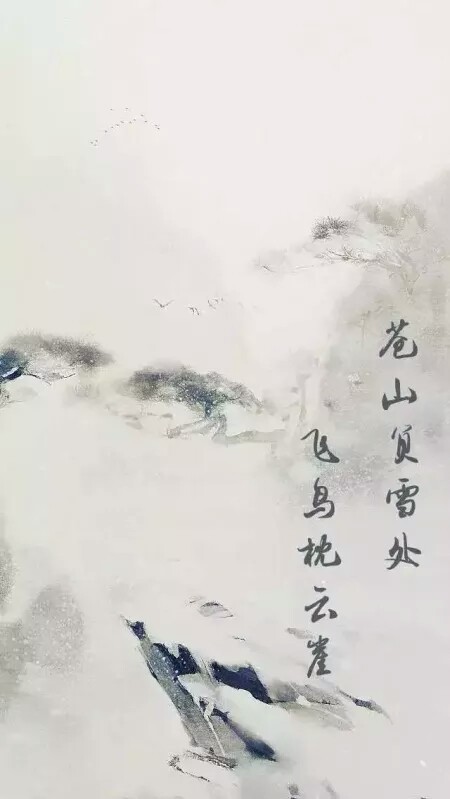 苍山负雪处
飞鸟枕云崖